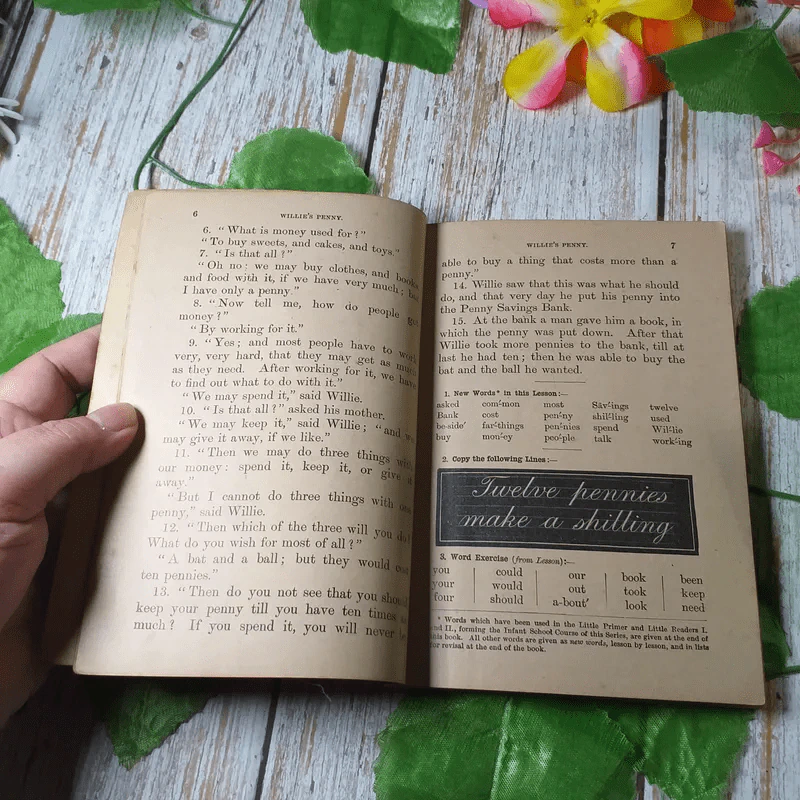 6 WILLIE'S PENNY.
6. “What is money used for?”
“To buy sweets, and cakes, and toys.”
7. “Is that all?”
“Oh no: we may buy clothes, and books
and food with it, if we have very much; but
I have only a penny.”
8. “Now tell me, how do people get
money?”
“By working for it.”
9. “Yes; and most people have to work
very, very hard, that they may get as much
as they need. After working for it, we have
to find out what to do with it.”
“We may spend it,” said Willie.
10. “Is that all?” asked his mother.
“We may keep it,” said Willie; “and we
may give it away, if we like.”
11. “Then we may do three things with
our money: spend it, keep it, or give it
away.”
“But I cannot do three things with one
penny,” said Willie.
12. “Then which of the three will you do?
What do you wish for most of all?”
“A bat and a ball; but they would cost
ten pennies.”
13. “Then do you not see that you should
keep your penny till you have ten times as
much? If you spend it, you will never be
WILLIE'S PENNY. 7
able to buy a thing that costs more than a
penny.”
14. Willie saw that this was what he should
do, and that very day he put his penny into
the Penny Savings Bank.
15. At the bank a man gave him a book, in
which the penny was put down. After that
Willie took more pennies to the bank, till at
last he had ten; then he was able to buy the
bat and the ball he wanted.
1. New Words* in this Lesson:—
asked com′-mon most Sāv′-ings twelve
Bank cost pen′-ny shil′-ling used
be-side′ far′-things pen′-nies spend Wil′-lie
buy mon′-ey peo′-ple talk work′-ing
2. Copy the following Lines:—
Twelve pennies
make a shilling
3. Word Exercise (from Lesson):—
you could our book been
your would out took keep
four should a-bout′ look need
* Words which have been used in the Little Primer and Little Readers I.
and II., forming the Infant School Course of this Series, are given at the end of
this book. All other words are given as new words, lesson by lesson, and in lists
for revisal at the end of the book.